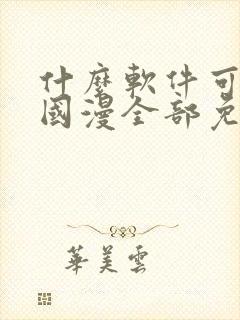 什麼軟件可
國漫全部免
華美雲